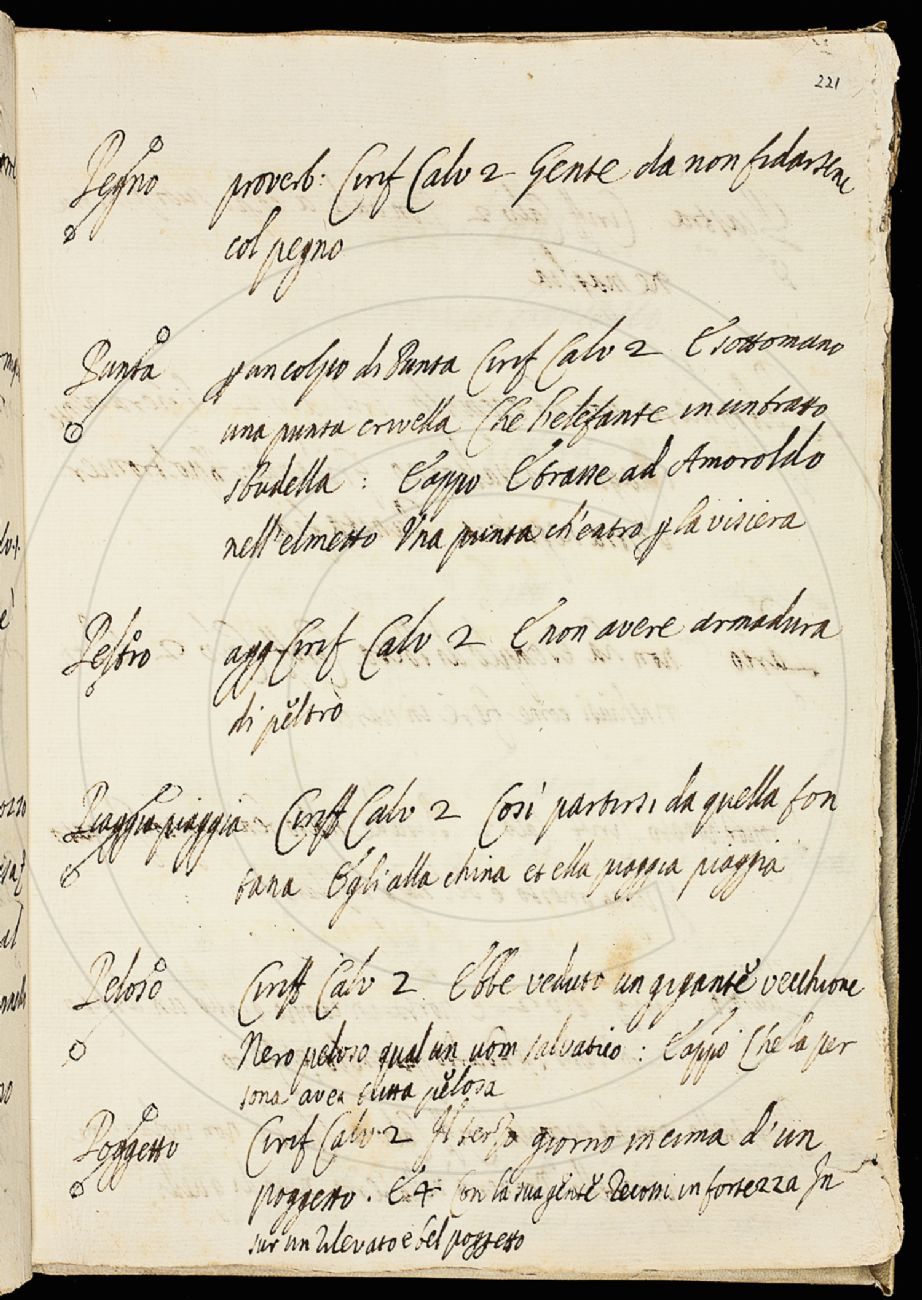 221
Pegno proverb: Cirif Calv 2 Gente da non fidarsene
col pegno
Punta per un colpo di Punta Cirif Calv 2 E sottomano
una punta crivella Che l'elefante in un tratto
sbudella : E appo E trasse ad Amoroldo
nell'elmetto Una punta ch'entrò p la visiera
Peltro agg Cirif Calv 2 E non avere armadura
di peltro
Piaggia piaggia Ciriff Calv 2 Così partirsi da quella fon
tana Egli alla china et ella piaggia piaggia
Peloso Ciriff Calv 2 Ebbe veduto un gigante vecchione
Nero peloso qual un uom salvatico : E appo Che la per
sona avea tutta pelosa
Poggetto Cirif Calv 2 Il terzo giorno in cima d'un
poggetto . E 4 Con la sua gente in fortezza In
sur un rilevato e bel poggetto